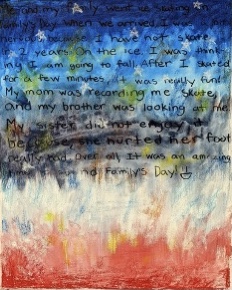 and my family went ice skating on
Family's Day. When we arrived I was
nervous because I have not skate
in 2 years. On the ice I was think-
ing I am going to fall. After I skated
for a few minutes it was really fun!
My mom was recording me skate
and my brother was looking at me.
My sister did not enjoy it
because she hurted her foot
really bad. Over all It was an amazing
Family's Day!